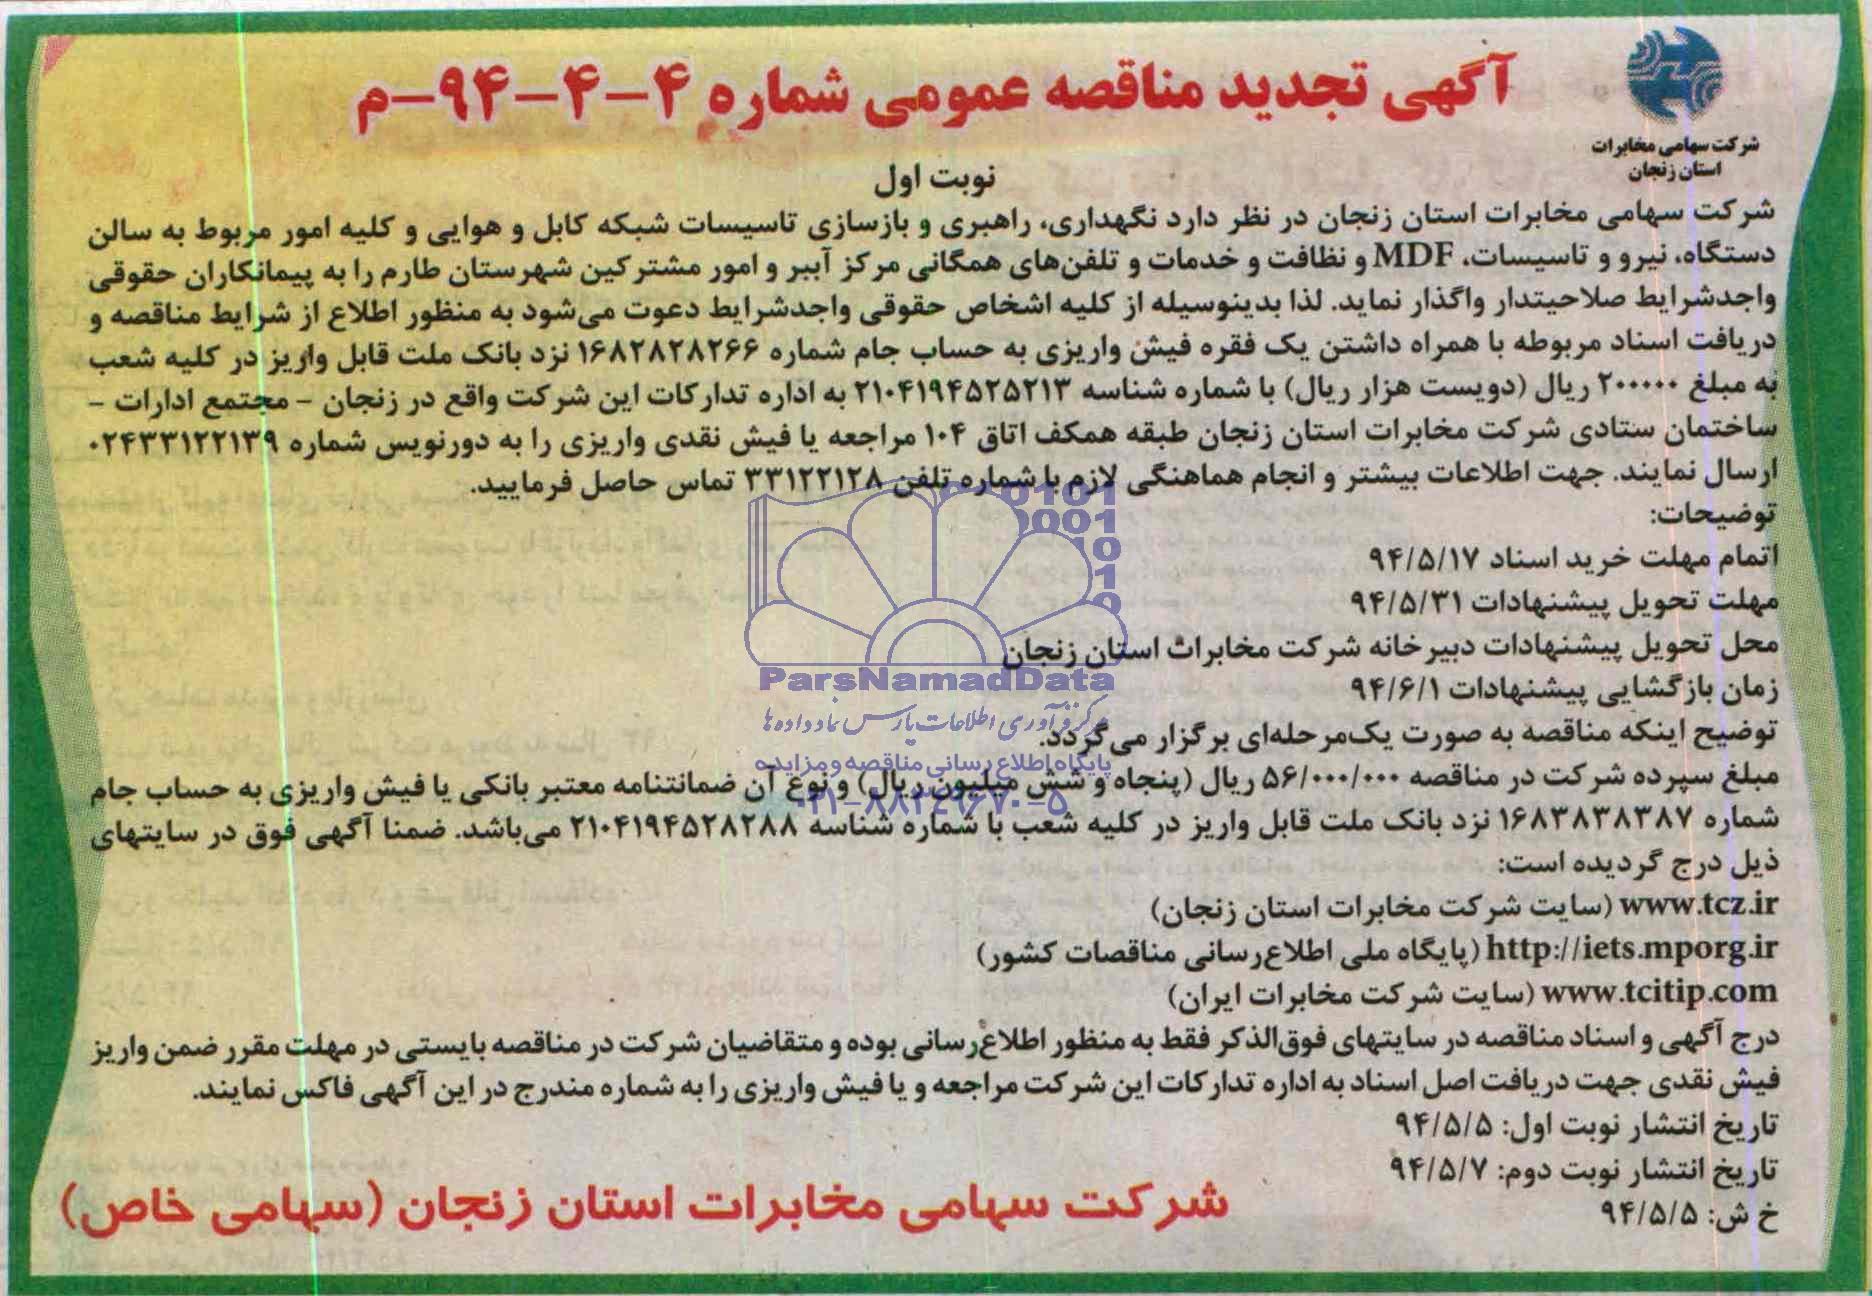 شرکت سهامی مخابرات
استان زنجان
آگهی تجدید مناقصه عمومی شماره ۴-۴-۹۴-م
نوبت اول
شرکت سهامی مخابرات استان زنجان در نظر دارد نگهداری، راهبری و بازسازی تاسیسات شبکه کابل و هوایی و کلیه امور مربوط به سالن
دستگاه، نیرو و تاسیسات، MDF و نظافت و خدمات و تلفن‌های همگانی مرکز آببر و امور مشترکین شهرستان طارم را به پیمانکاران حقوقی
واجدشرایط صلاحیتدار واگذار نماید. لذا بدینوسیله از کلیه اشخاص حقوقی واجدشرایط دعوت می‌شود به منظور اطلاع از شرایط مناقصه و
دریافت اسناد مربوطه با همراه داشتن یک فقره فیش واریزی به حساب جام شماره ۱۶۸۲۸۲۸۲۶۶ نزد بانک ملت قابل واریز در کلیه شعب
به مبلغ ۲۰۰۰۰۰ ریال (دویست هزار ریال) با شماره شناسه ۲۱۰۴۱۹۴۵۲۵۲۱۳ به اداره تدارکات این شرکت واقع در زنجان - مجتمع ادارات -
ساختمان ستادی شرکت مخابرات استان زنجان طبقه همکف اتاق ۱۰۴ مراجعه یا فیش نقدی واریزی را به دورنویس شماره ۰۲۴۳۳۱۲۲۱۳۹
ارسال نمایند. جهت اطلاعات بیشتر و انجام هماهنگی لازم با شماره تلفن ۳۳۱۲۲۱۲۸ تماس حاصل فرمایید.
توضیحات:
اتمام مهلت خرید اسناد ۹۴/۵/۱۷
مهلت تحویل پیشنهادات ۹۴/۵/۳۱
محل تحویل پیشنهادات دبیرخانه شرکت مخابرات استان زنجان
زمان بازگشایی پیشنهادات ۹۴/۶/۱
توضیح اینکه مناقصه به صورت یک‌مرحله‌ای برگزار می‌گردد.
مبلغ سپرده شرکت در مناقصه ۵۶/۰۰۰/۰۰۰ ریال (پنجاه و شش میلیون ریال) و نوع آن ضمانتنامه معتبر بانکی یا فیش واریزی به حساب جام
شماره ۱۶۸۳۸۳۸۳۸۷ نزد بانک ملت قابل واریز در کلیه شعب با شماره شناسه ۲۱۰۴۱۹۴۵۲۸۲۸۸ می‌باشد. ضمنا آگهی فوق در سایتهای
ذیل درج گردیده است:
www.tcz.ir (سایت شرکت مخابرات استان زنجان)
http://iets.mporg.ir (پایگاه ملی اطلاع‌رسانی مناقصات کشور)
www.tcitip.com (سایت شرکت مخابرات ایران)
درج آگهی و اسناد مناقصه در سایتهای فوق‌الذکر فقط به منظور اطلاع‌رسانی بوده و متقاضیان شرکت در مناقصه بایستی در مهلت مقرر ضمن واریز
فیش نقدی جهت دریافت اصل اسناد به اداره تدارکات این شرکت مراجعه و یا فیش واریزی را به شماره مندرج در این آگهی فاکس نمایند.
تاریخ انتشار نوبت اول: ۹۴/۵/۵
تاریخ انتشار نوبت دوم: ۹۴/۵/۷
خ ش: ۹۴/۵/۵
شرکت سهامی مخابرات استان زنجان (سهامی خاص)
ParsNamadData
مرکز فرآوری اطلاعات پارس نماد داده‌ها
پایگاه اطلاع رسانی مناقصه و مزایده
۰۲۱-۸۸۳۴۹۶۷۰-۵